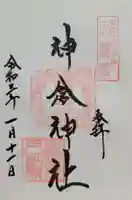 奉拝
神倉神社
令和三年一月十一日